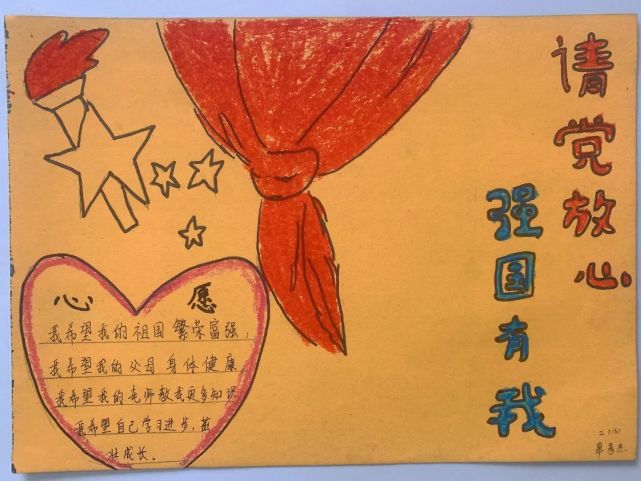 请党放心
强国有我
心愿
我希望我的祖国繁荣富强，
我希望我的父母身体健康
我希望我的老师教我更多知识
我希望自己学习进步，茁
壮成长。
二（5）